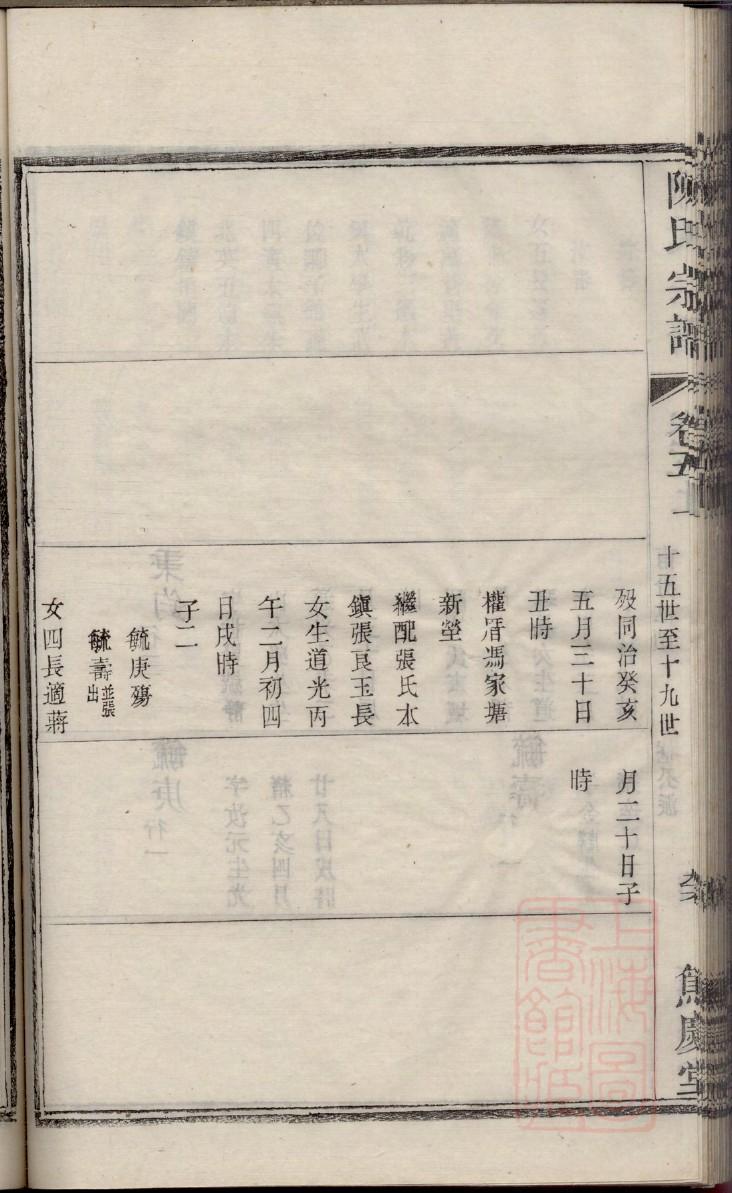 陳氏宗譜
卷五
十五世至十九世
歿同治癸亥
五月三十日
丑時
權厝馮家塘
新塋
繼配張氏本
鎮張良玉長
女生道光丙
午二月初四
日戌時
子二
毓庚殤
毓壽並張出
女四長適蔣
月二十日子
時
上海圖書館藏